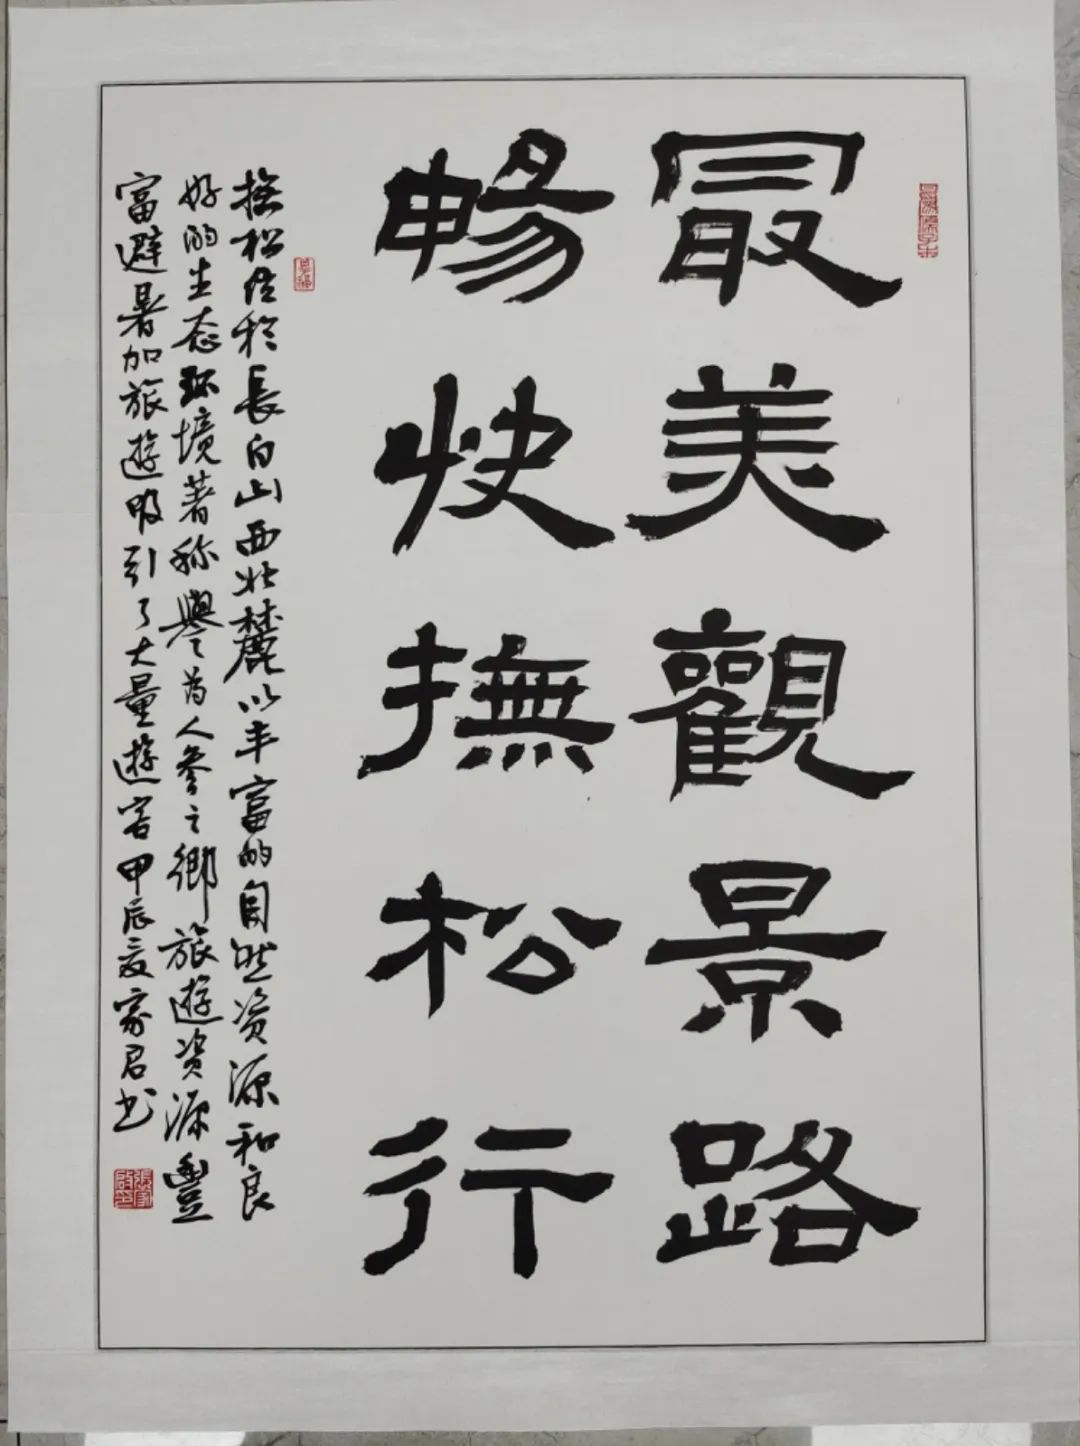 最美觀景路
暢快撫松行
撫松位於長白山西北麓以丰富的自然资源和良
好的生态环境著称譽为人参之鄉旅遊资源豐
富避暑加旅遊吸引了大量遊客甲辰夏家君书